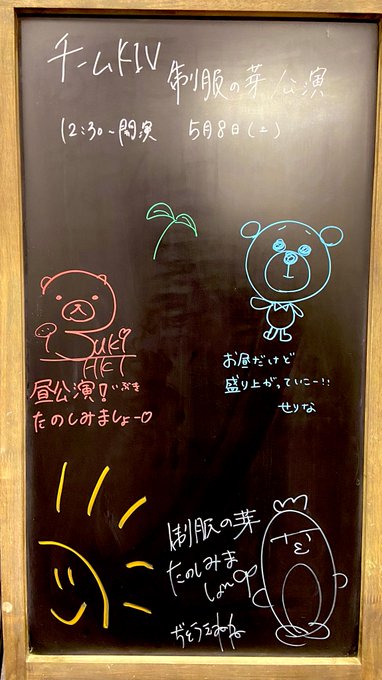 チームKIV
制服の芽 公演
12:30〜開演 5月8日(土)
昼公演! いぶき
たのしみましょー♡
お昼だけど
盛り上がっていこー!!
せりな
制服の芽
たのしみま
しょー